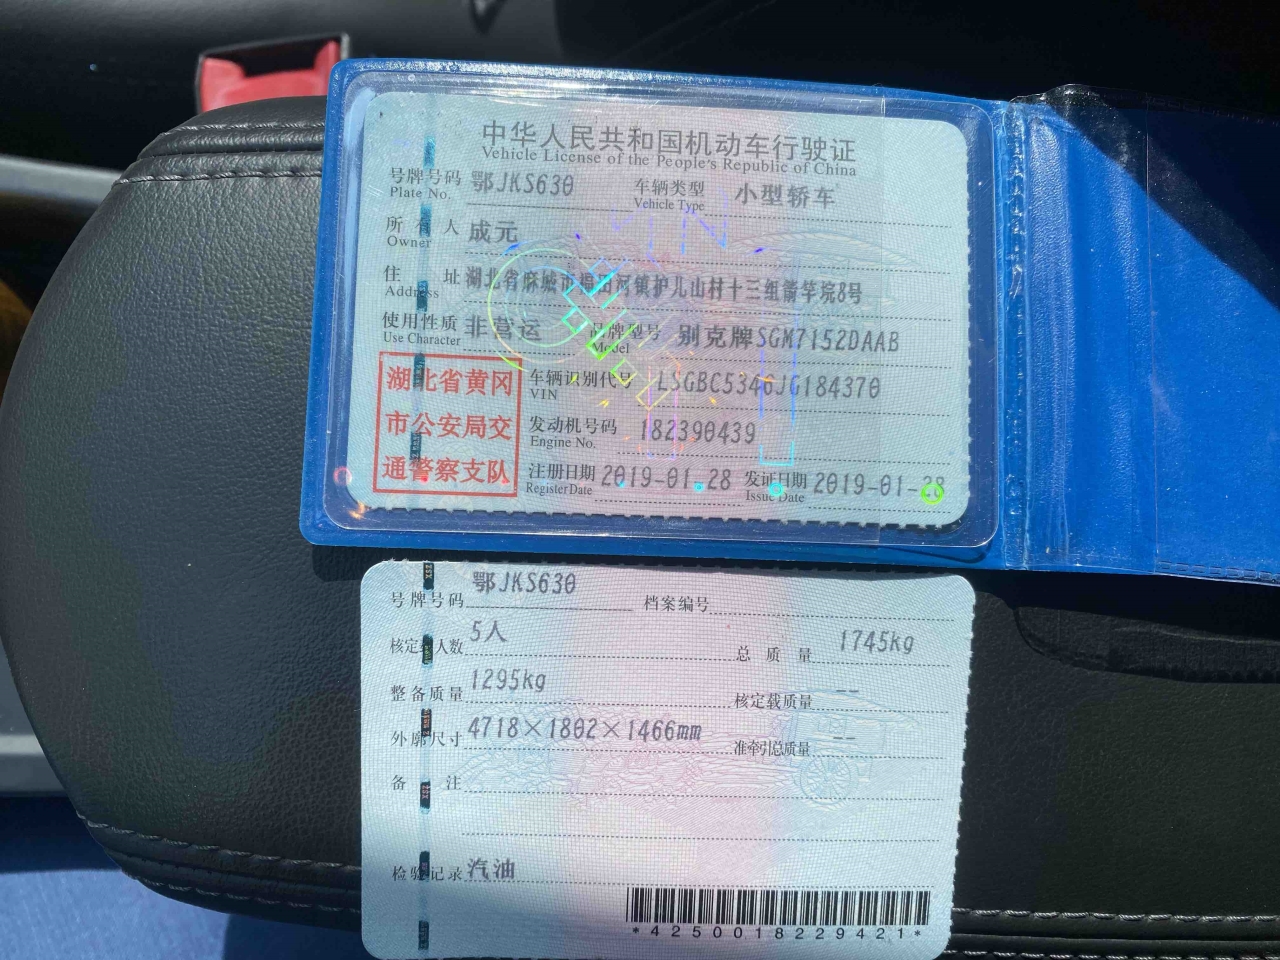 中华人民共和国机动车行驶证
Vehicle License of the People's Republic of China
号牌号码 鄂JKS630 车辆类型 小型轿车
Plate No. Vehicle Type
所有人 成元
Owner
住址 湖北省麻城市福田河镇护儿山村十三组箭竿垸8号
Address
使用性质 非营运 品牌型号 别克牌SGM7152DAAB
Use Character Model
湖北省黄冈
市公安局交
通警察支队
车辆识别代号 LSGBC5346JG184370
VIN
发动机号码 182390439
Engine No.
注册日期 2019-01-28 发证日期 2019-01-28
Register Date Issue Date
号牌号码 鄂JKS630 档案编号
核定载人数 5人 总质量 1745kg
整备质量 1295kg 核定载质量 --
外廓尺寸 4718×1802×1466mm 准牵引总质量 --
备注
检验记录 汽油
*4250018229421*